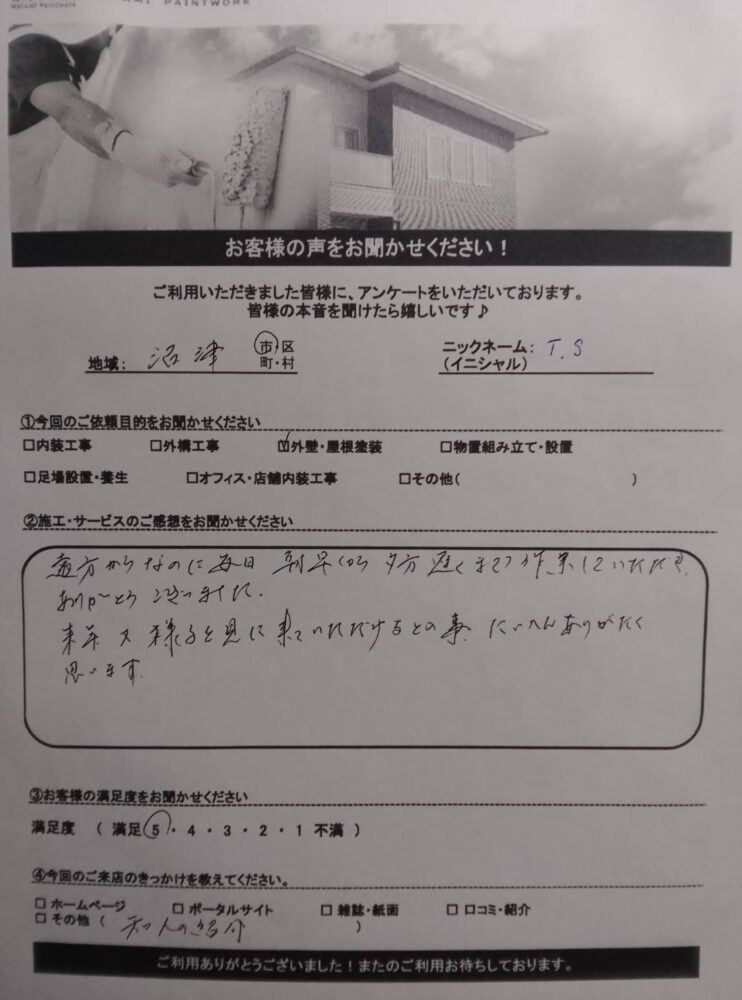 PAINTWORK
お客様の声をお聞かせください！
ご利用いただきました皆様に、アンケートをいただいております。
皆様の本音を聞けたら嬉しいです♪
地域： 沼津 市・区 町・村
ニックネーム： T.S
（イニシャル）
①今回のご依頼目的をお聞かせください
□内装工事 □外構工事 ☑外壁・屋根塗装 □物置組み立て・設置
□足場設置・養生 □オフィス・店舗内装工事 □その他（ ）
②施工・サービスのご感想をお聞かせください
遠方からなのに毎日 朝早くから 夕方遅くまで 作業していただき、
ありがとうございました。
来年又様子を見に来ていただけるとの事 たいへんありがたく
思います。
③お客様の満足度をお聞かせください
満足度 （ 満足 5・4・3・2・1 不満 ）
④今回のご来店のきっかけを教えてください。
□ ホームページ □ ポータルサイト □ 雑誌・紙面 □ 口コミ・紹介
□ その他（ 知人の紹介 ）
ご利用ありがとうございました！またのご利用お待ちしております。